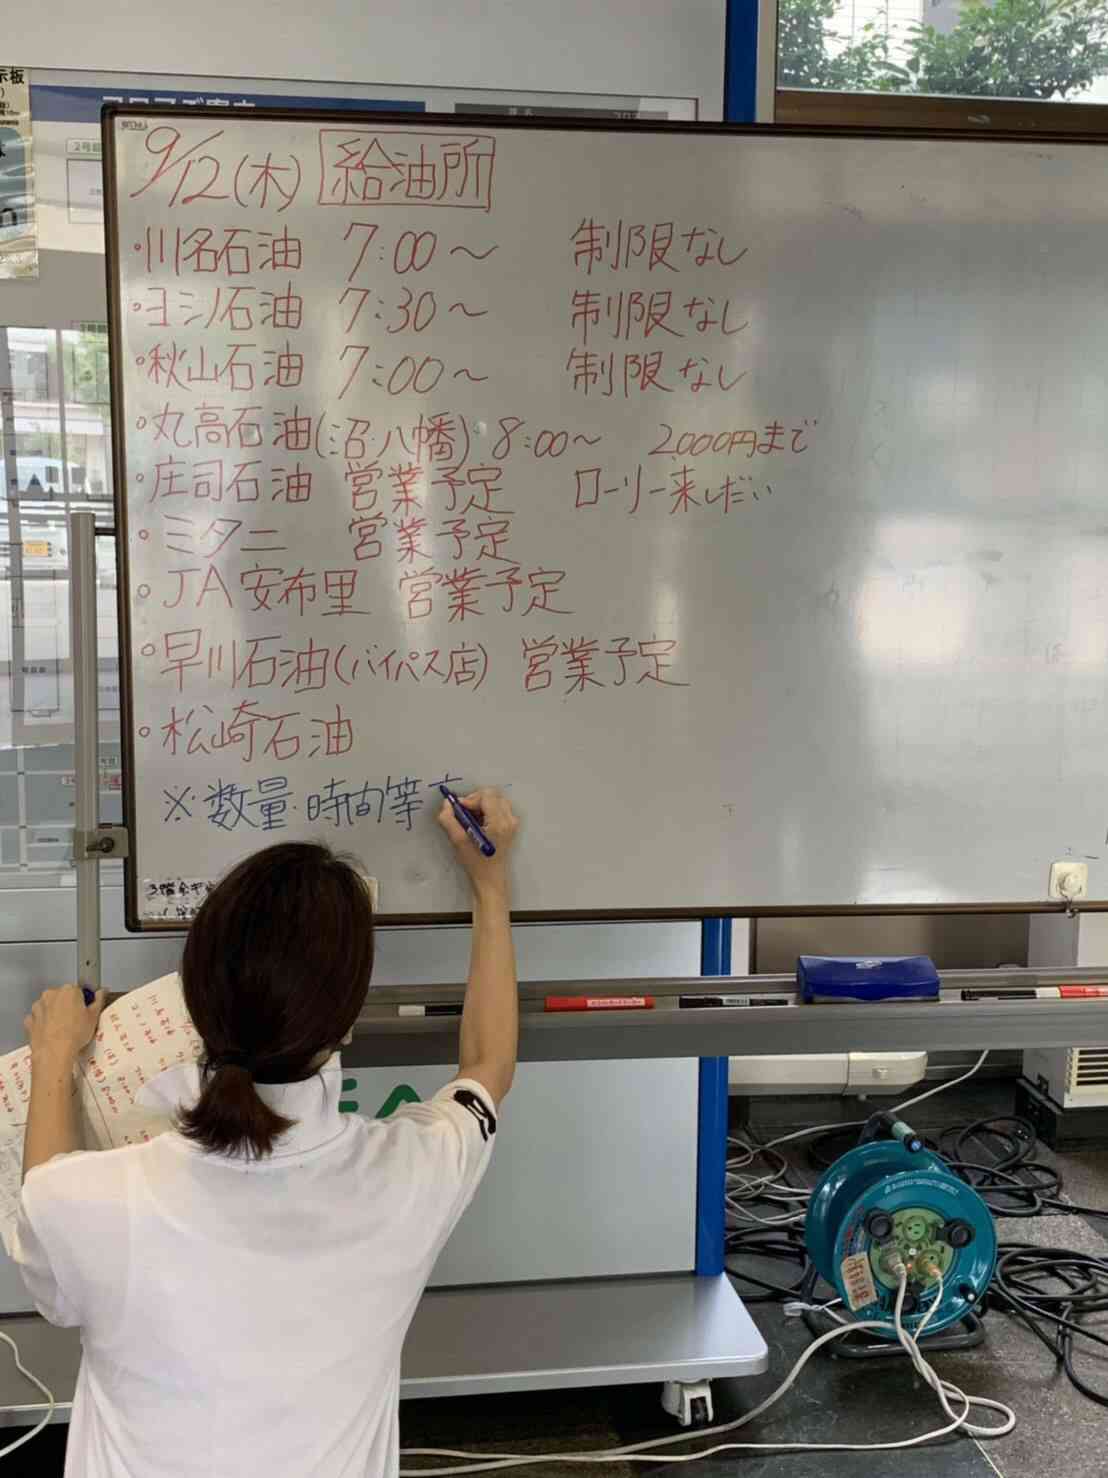 9/12(木) 給油所
・川名石油 7:00〜 制限なし
・ヨシノ石油 7:30〜 制限なし
・秋山石油 7:00〜 制限なし
・丸高石油(沼・八幡) 8:00〜 2000円まで
・庄司石油 営業予定 ローリー来しだい
・ミタニ 営業予定
・JA安布里 営業予定
・早川石油(バイパス店) 営業予定
・松崎石油
※数量・時間等